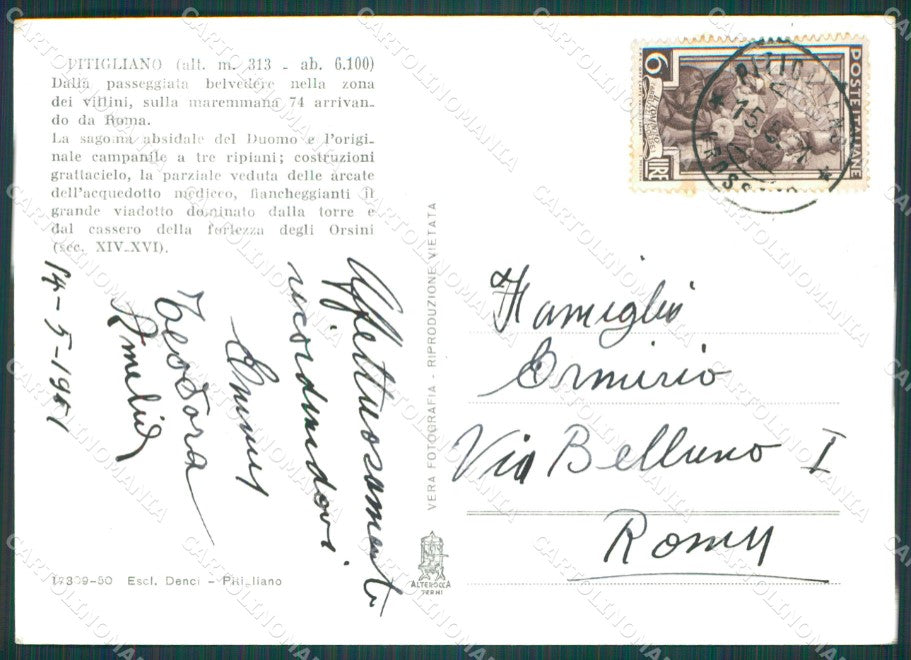 PITIGLIANO (alt. m. 313 - ab. 6.100)
Dalla passeggiata belvedere nella zona
dei villini, sulla maremmana 74 arrivan-
do da Roma.
La sagoma absidale del Duomo e l'origi-
nale campanile a tre ripiani; costruzioni
grattacielo, la parziale veduta delle arcate
dell'acquedotto mediceo, fiancheggianti il
grande viadotto dominato dalla torre e
dal cassero della fortezza degli Orsini
(sec. XIV-XVI).
14-5-1951
Affettuosamente
ricordandovi
Emma
Teodora
Amelia
17309-50 Escl. Denci - Pitigliano
VERA FOTOGRAFIA - RIPRODUZIONE VIETATA
ALTEROCCA
TERNI
POSTE ITALIANE
6
LIRE
PITIGLIANO
GROSSETO
Famiglia
Ormirio
Via Belluno I
Roma
CARTOLINOMANIA